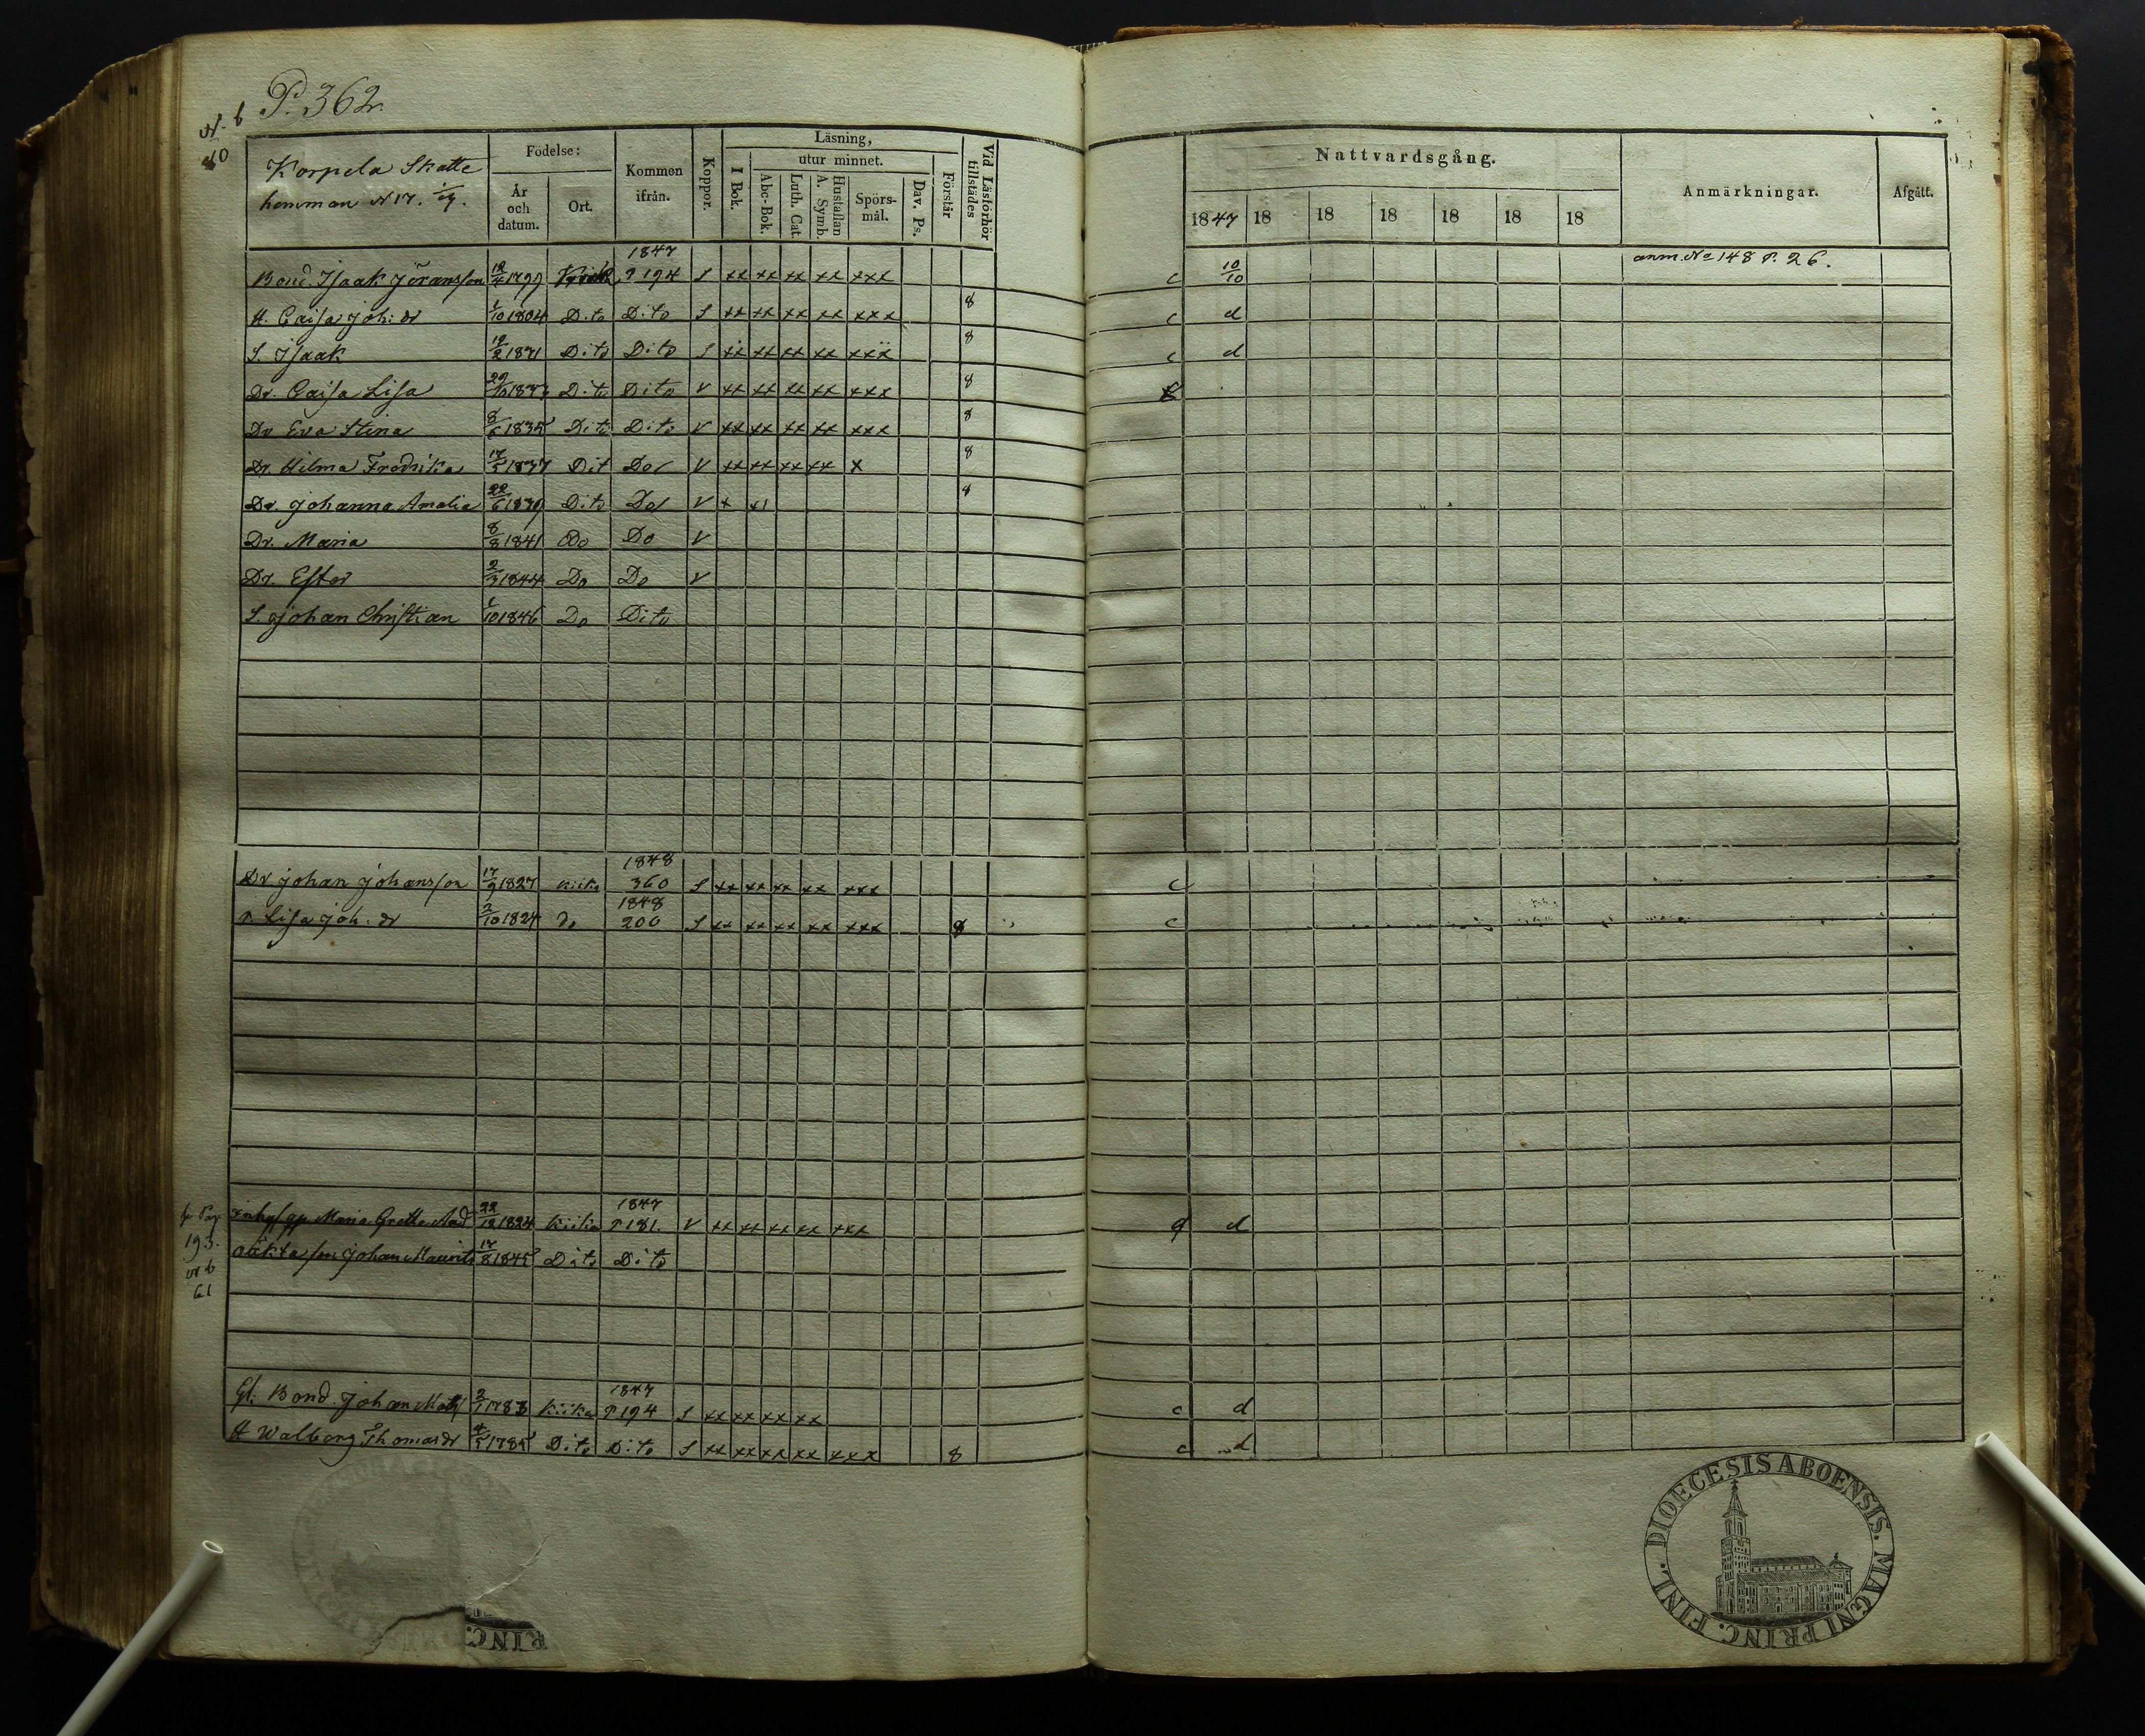 P. 362
N. 6
Korpela Skatte
hemman N 17.
Födelse:
År
och
datum.
Ort.
Kommen
ifrån.
Koppor.
Läsning,
I Bok.
utur minnet.
Abc-Bok.
Luth. Cat.
Hustaflan
A. Symb.
Spörs-
mål.
Dav. Ps.
Förstår
Vid Läsförhör
tillstädes
Nattvardsgång.
1847 18 18 18 18 18 18
Anmärkningar.
Afgått.
1847
Bond. Isaak Jöransson 12/4 1799 P 194 S xx xx xx xx xxx c 10/10 anm. No 148 P. 26.
H. Caisa Joh: dr 1/10 1804 Dito Dito S xx xx xx xx xxx 8 c d
S. Isaak Dito Dito S xx xx xx xx xxx 8 c d
Dr. Caisa Lisa Dito Dito V xx xx xx xx xxx 8
Dr Eva Stina 8/6 1835 Dito Dito V xx xx xx xx xxx 8
Dr. Hilma Fredrika 17/5 1837 Dit Do V xx xx xx xx x 8
Dr. Johanna Amalia 22/6 1839 Dito Do V x x1 8
Dr. Maria 8/8 1841 Do Do V
Dr. Ester 2/3 1844 Do Do V
S. Johan Christian 1/10 1846 Do Dito
1848
Dr Johan Johansson 17/9 1827 Kiika 360 S xx xx xx xx xxx c
1848
P. Lisa Joh: dr 2/10 1824 do 200 S xx xx xx xx xxx 8 c
1847
Maria Greta 22/12 1824 Kiika P 181. V xx xx xx xx xxx d
193.
oäkta son Johan Maurits 17/8 1845 Dito Dito
N 6
61
1847
Gl. Bond. Johan Matts 2/1 1783 Kiika P 194 S xx xx xx xx c d
H Walborg Thomasdr 4/5 1785 Dito Dito S xx xx xx xx xxx 8 c d
DIOECESIS ABOENSIS. MAGNI PRINC. FINL.
RINC.